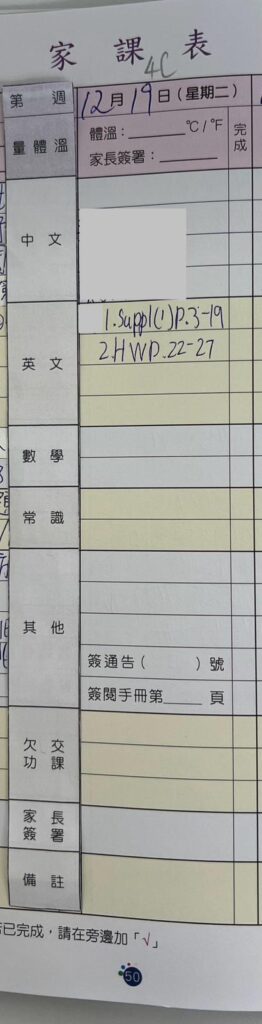 家課表
4C
第 週 12月19日(星期二)
量體溫 體溫：______°C/°F 完成
家長簽署：______
中文
英文
1.Suppl(1)P.3-19
2.HWP.22-27
數學
常識
其他
簽通告( )號
簽閱手冊第____頁
欠交功課
家長簽署
備註
已完成，請在旁邊加「√」
50